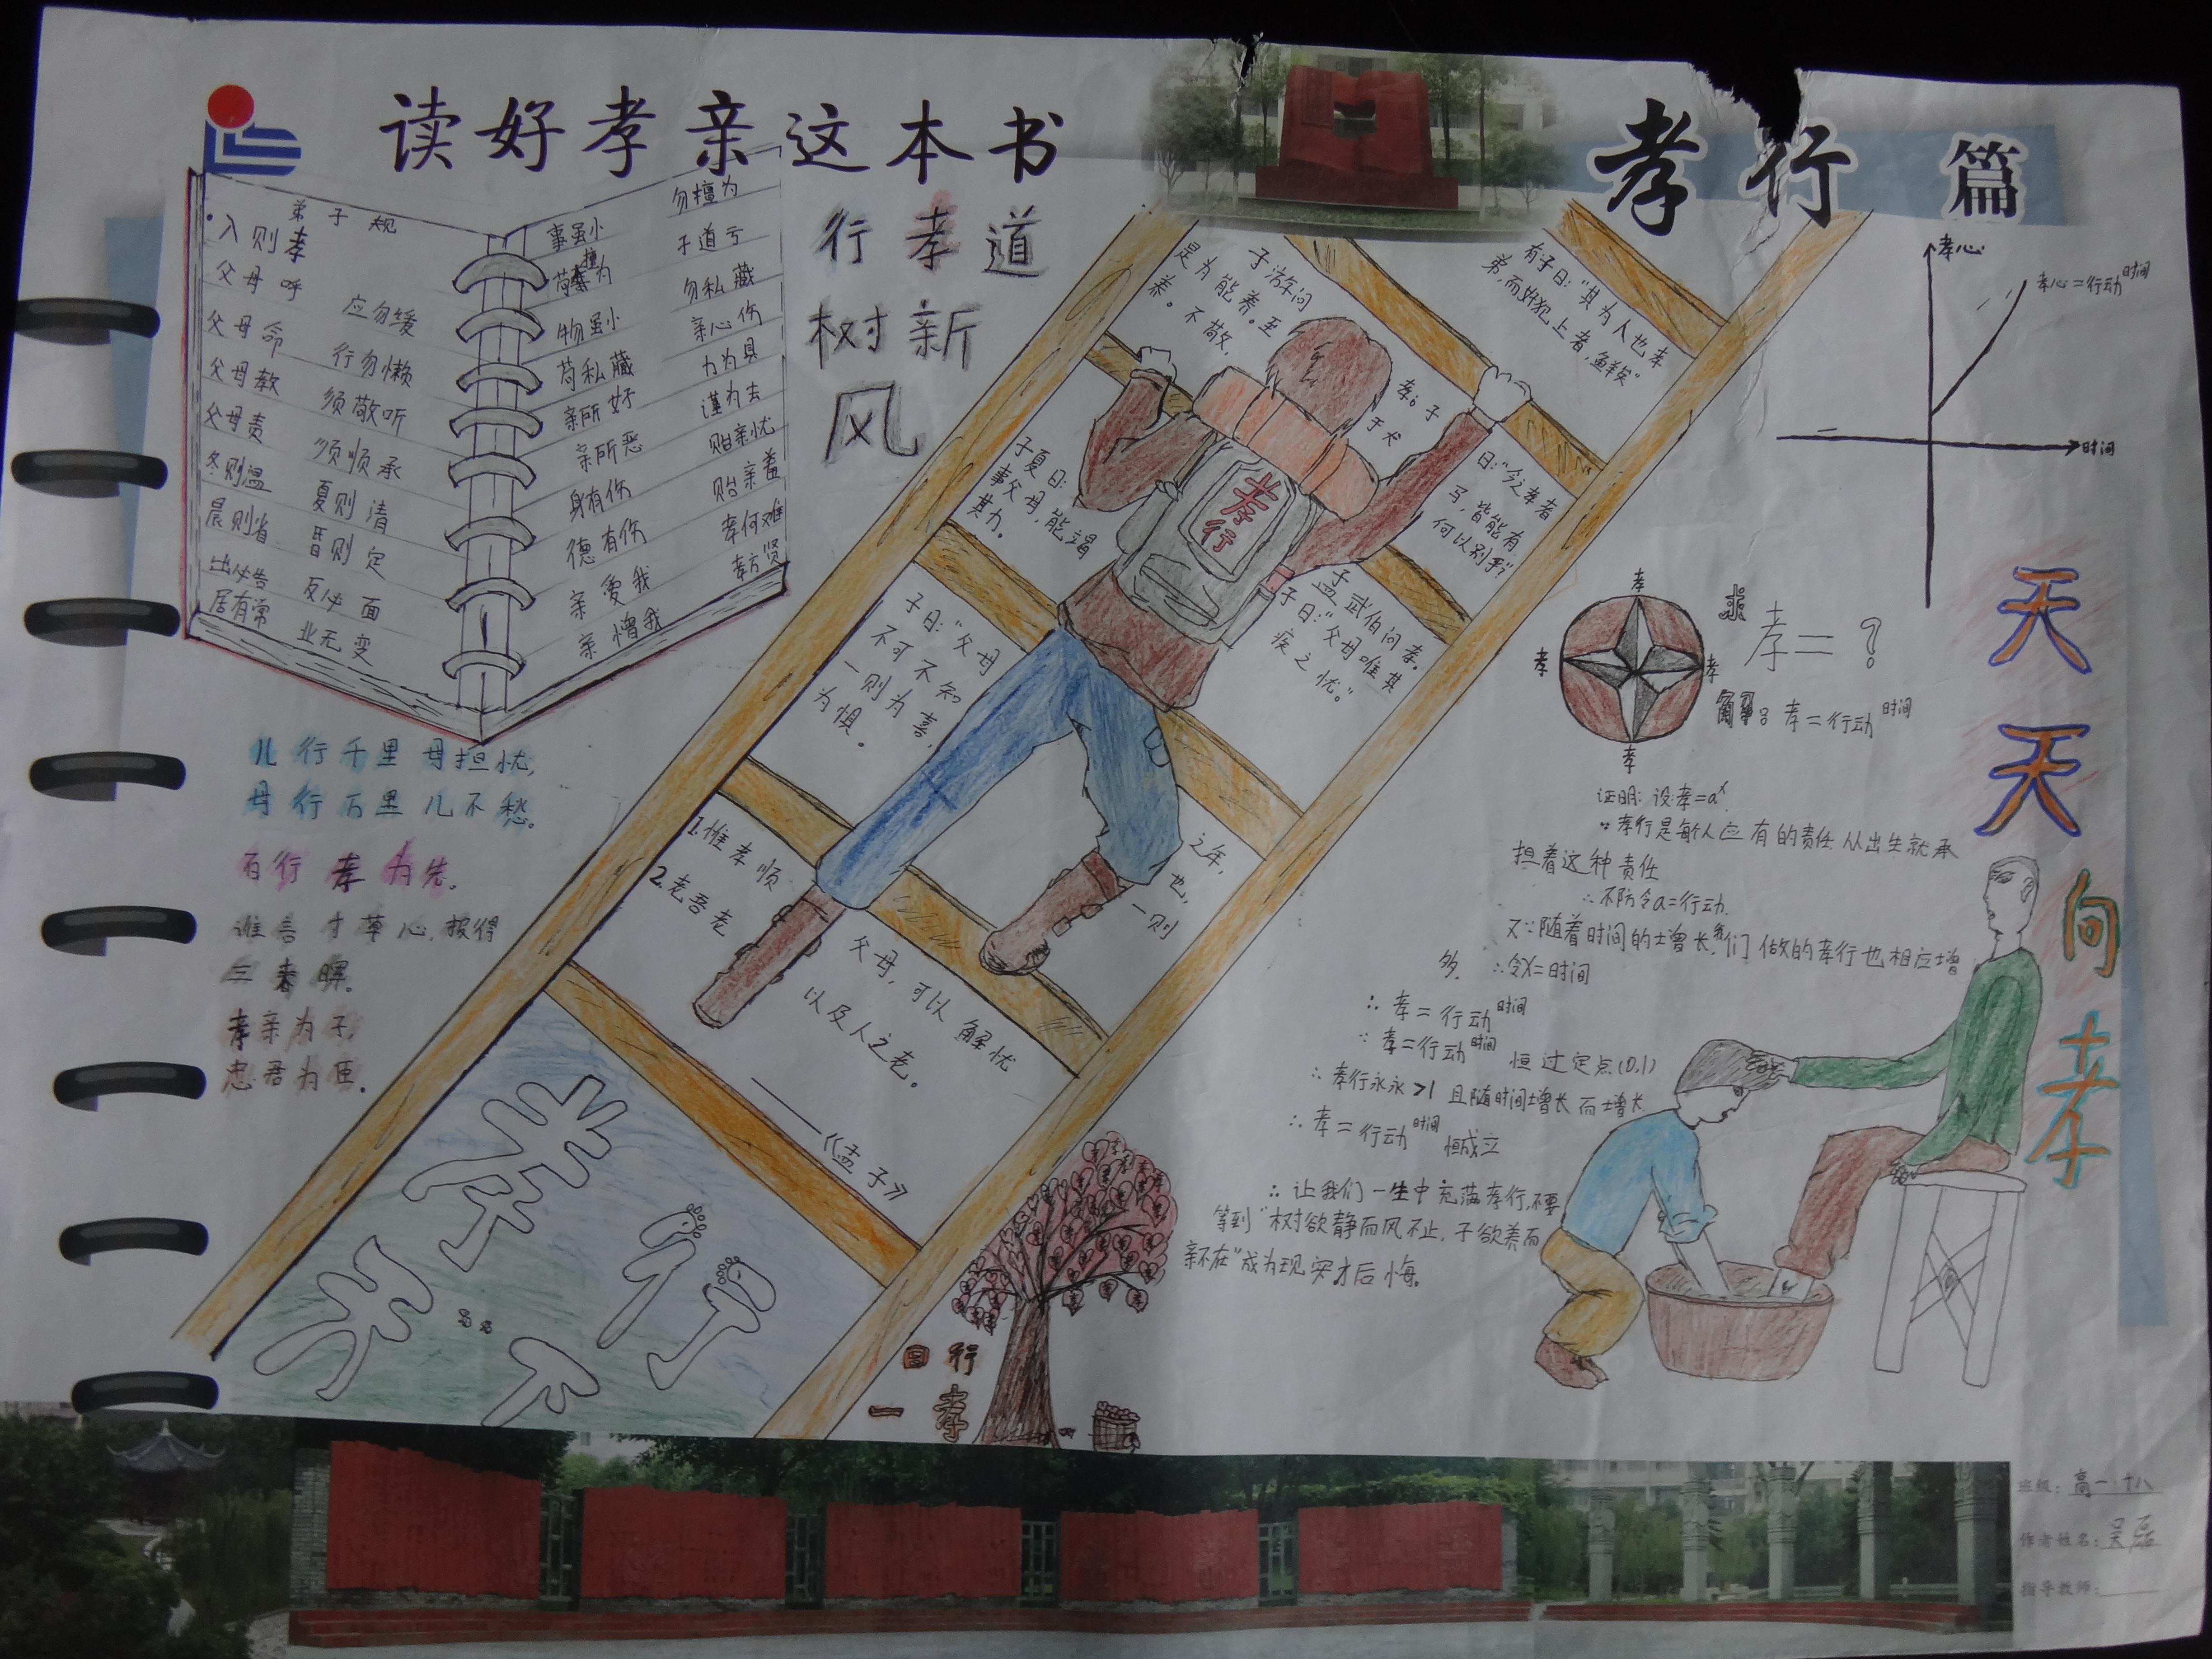 读好孝亲这本书
孝行篇
弟子规
入则孝
父母呼 应勿缓
父母命 行勿懒
父母教 须敬听
父母责 须顺承
冬则温 夏则清
晨则省 昏则定
出必告 反必面
居有常 业无变
事虽小 勿擅为
苟擅为 子道亏
物虽小 勿私藏
苟私藏 亲心伤
亲所好 力为具
亲所恶 谨为去
身有伤 贻亲忧
德有伤 贻亲羞
亲爱我 孝何难
亲憎我 孝方贤
行孝道
树新
风
儿行千里母担忧,
母行万里儿不愁。
百行孝为先。
谁言寸草心,报得
三春晖。
孝亲为子,
忠君为臣。
有子曰:“其为人也孝
弟,而好犯上者,鲜矣”
子游问
孝。子
曰:“今之孝者
是为能养。至
于犬
马,皆能有
养。不敬,
何以别乎?”
子夏曰:
事父母,能竭
其力。
孟武伯问孝。
子曰:“父母唯其
疾之忧。”
子曰:“父母
之年,
不可不知
也,
一则为喜,
一则
为惧。
1.惟孝顺
父母,可以解忧
2.老吾老
以及人之老。
——《孟子》
孝行
孝行
天下
日行
一孝
孝心
孝心=行动时间
时间
孝
孝
孝
孝
求
孝=?
解:孝=行动时间
证明:设孝=aˣ
∵孝行是每个人应有的责任从出生就承
担着这种责任
∴不防令a=行动
又∵随着时间的增长,我们做的孝行也相应增
多. ∴令X=时间
∴孝=行动时间
∵孝=行动时间 恒过定点(0,1)
∴孝行永永>1 且随时间增长而增大
∴孝=行动时间 恒成立
∴让我们一生中充满孝行,不要
等到“树欲静而风不止,子欲养而
亲不在”成为现实才后悔。
天天向孝
班级:高一·十八
作者姓名:吴磊
指导教师: